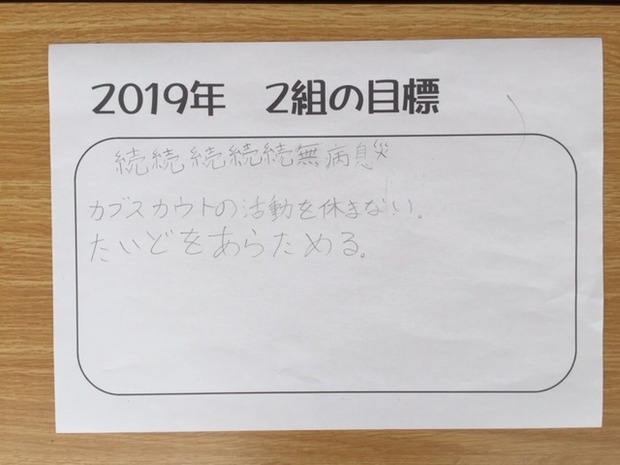 2019年 2組の目標
続続続続続無病息災
カブスカウトの活動を休まない。
たいどをあらためる。